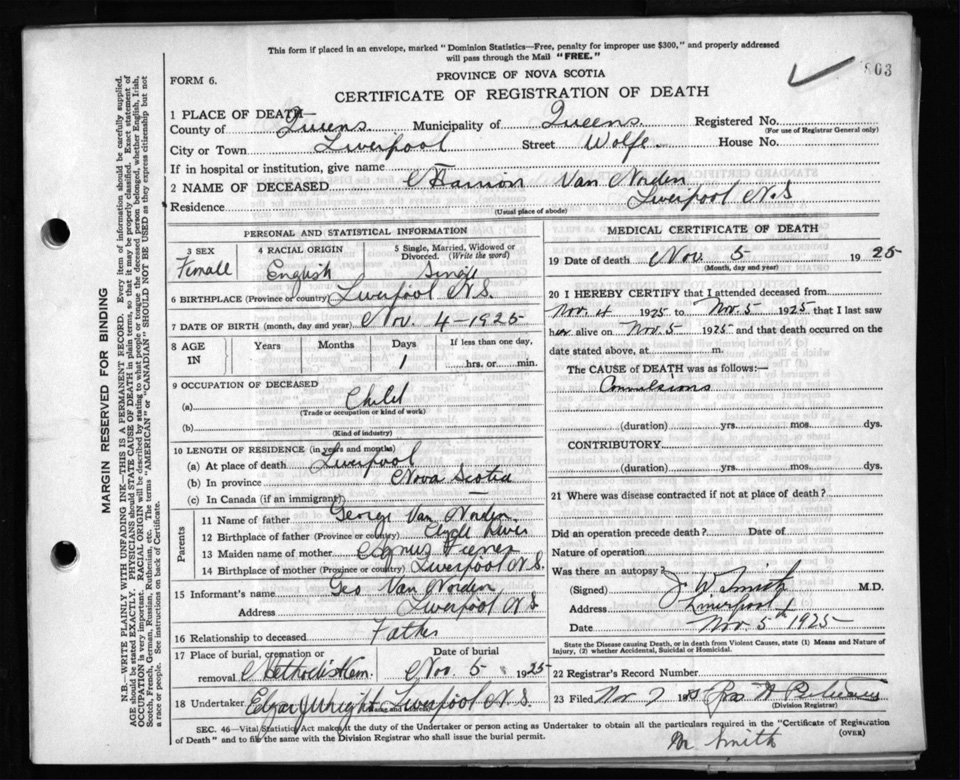 This form if placed in an envelope, marked "Dominion Statistics—Free, penalty for improper use $300," and properly addressed
will pass through the Mail "FREE."
PROVINCE OF NOVA SCOTIA
FORM 6.
CERTIFICATE OF REGISTRATION OF DEATH
1 PLACE OF DEATH—
County of Queens Municipality of Queens Registered No.
(For use of Registrar General only)
City or Town Liverpool Street Wolfe House No.
If in hospital or institution, give name —
2 NAME OF DECEASED Van Norden
Residence Liverpool N.S
(Usual place of abode)
PERSONAL AND STATISTICAL INFORMATION
3 SEX 4 RACIAL ORIGIN 5 Single, Married, Widowed or
Divorced. (Write the word)
Female English Single
6 BIRTHPLACE (Province or country) Liverpool N.S.
7 DATE OF BIRTH (month, day and year) Nov. 4 – 1925
8 AGE IN Years Months Days If less than one day,
1 hrs. or min.
9 OCCUPATION OF DECEASED
(a) Child
(Trade or occupation or kind of work)
(b)
(Kind of industry)
10 LENGTH OF RESIDENCE (in years and months)
(a) At place of death Liverpool
(b) In province Nova Scotia
(c) In Canada (if an immigrant) —
Parents
11 Name of father George Van Norden
12 Birthplace of father (Province or country) Clyde River
13 Maiden name of mother
14 Birthplace of mother (Province or country) Liverpool N.S.
15 Informant's name Geo Van Norden
Address Liverpool N.S
16 Relationship to deceased Father
17 Place of burial, cremation or Date of burial
removal Methodist Cem. Nov. 5 1925
18 Undertaker Liverpool N.S.
MEDICAL CERTIFICATE OF DEATH
19 Date of death Nov. 5 1925
(Month, day and year)
20 I HEREBY CERTIFY that I attended deceased from
Nov. 4 1925 to Nov. 5 1925 that I last saw
her alive on Nov. 5 1925 and that death occurred on the
date stated above, at m.
The CAUSE of DEATH was as follows:—
Convulsions
(duration) yrs. mos. dys.
CONTRIBUTORY
(duration) yrs. mos. dys.
21 Where was disease contracted if not at place of death?
Did an operation precede death? Date of
Nature of operation
Was there an autopsy?
(Signed) J W Smith M.D.
Address Liverpool
Date Nov. 5th 1925
State the Disease causing Death, or in death from Violent Causes, state (1) Means and Nature of
Injury, (2) whether Accidental, Suicidal or Homicidal.
22 Registrar's Record Number
23 Filed Nov 7
(Division Registrar)
SEC. 46—Vital Statistics Act makes it the duty of the Undertaker or person acting as Undertaker to obtain all the particulars required in the "Certificate of Registration
of Death" and to file the same with the Division Registrar who shall issue the burial permit.
(OVER)
Dr Smith
MARGIN RESERVED FOR BINDING
N.B.—WRITE PLAINLY WITH UNFADING INK—THIS IS A PERMANENT RECORD. Every item of information should be carefully supplied.
AGE should be stated EXACTLY. PHYSICIANS should STATE CAUSE OF DEATH in plain terms, so that it may be properly classified. Exact statement of
OCCUPATION is very important. RACIAL ORIGIN will be described by stating to what people or tongue the deceased person belonged, whether English, Irish,
Scotch, French, German, Russian, Ruthenian, etc. The terms "AMERICAN" or "CANADIAN" SHOULD NOT BE USED as they express citizenship but not
a race or people. See instructions on back of Certificate.